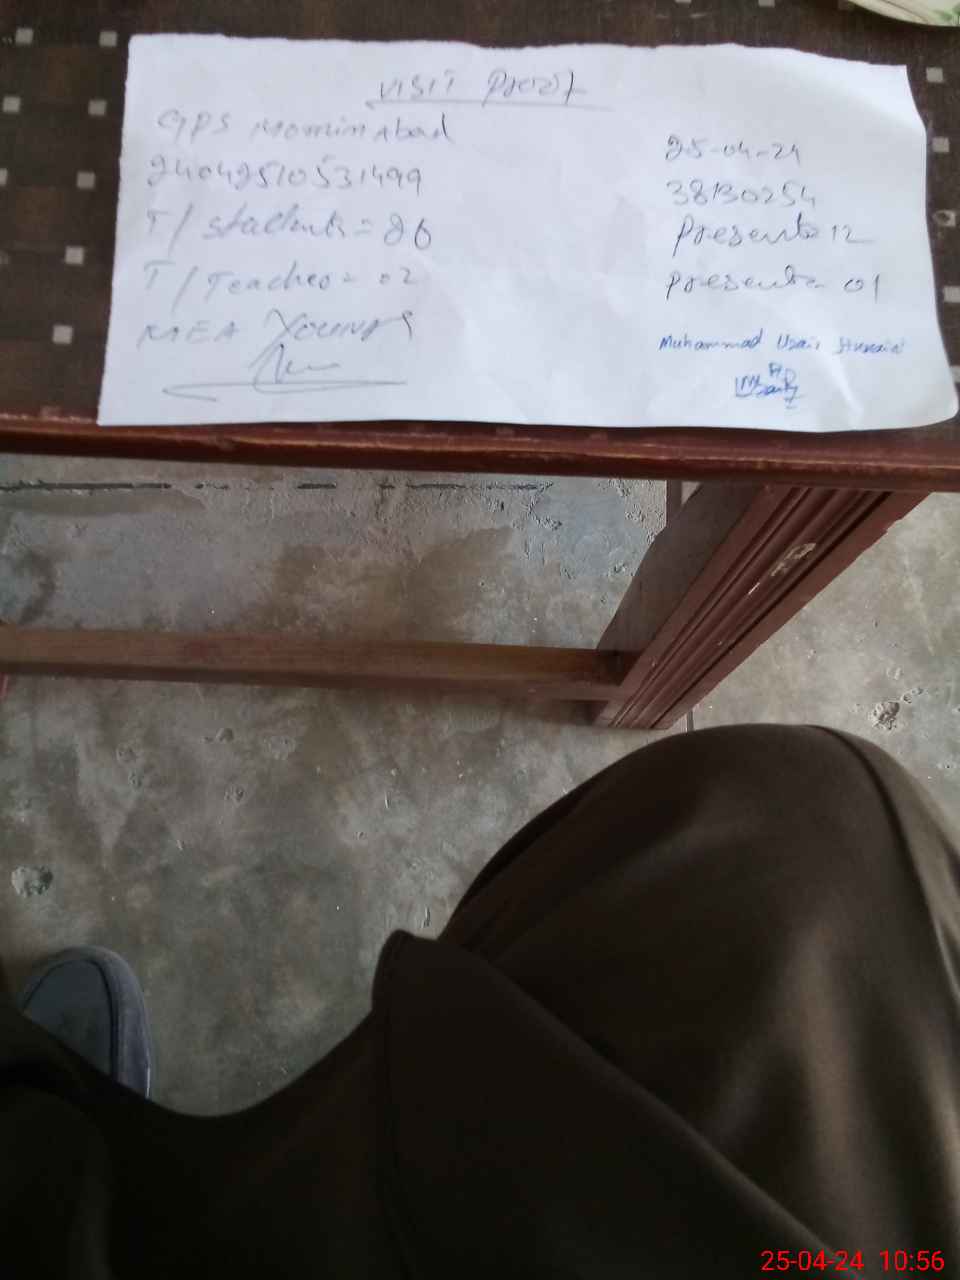 VISIT Proof
GPS Mominabad
25-04-24
38130254
T/ students = 26
Present = 12
T/ Teacher = 02
Present = 01
MEA YOUNAS
Muhammad Uzair Hussain
25-04-24 10:56